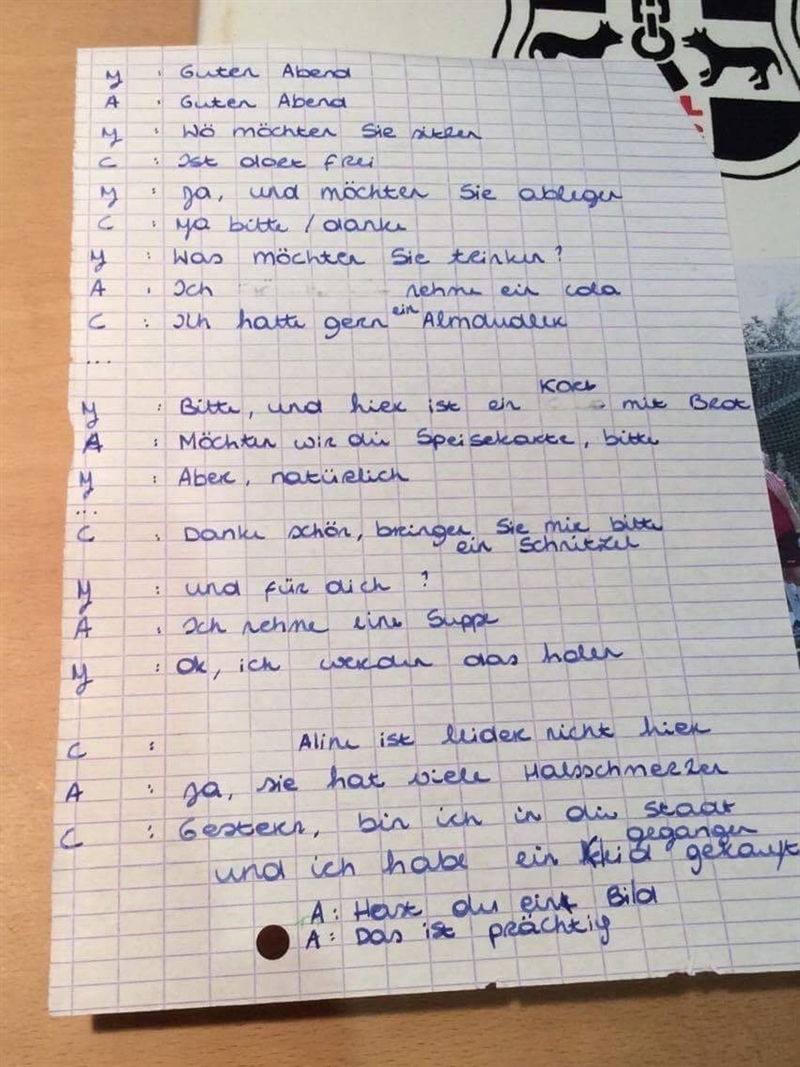 Y : Guten Abend
A : Guten Abend
Y : Wö möchten Sie sitzen
C : Ist dort frei
Y : Ja, und möchten Sie ablegen
C : Ya bitte / danke
Y : Was möchten Sie trinken?
A : Ich nehme ein cola
C : Ich hatte gern ein Almdudler
...
Y : Bitte, und hier ist ein Korb mit Brot
A : Möchten wir die Speisekarte, bitte
Y : Aber, natürlich
...
C : Danke schön, bringen Sie mir bitte
ein Schnitzel
Y : und für dich ?
A : Ich nehme eine Suppe
Y : Ok, ich werden das holen
C : Aline ist leider nicht hier
A : Ja, sie hat viele Halsschmerzen
C : Gestern, bin ich in die Stadt
gegangen
und ich habe ein Kleid gekauft
A : Hast du ein Bild
A : Das ist prächtig